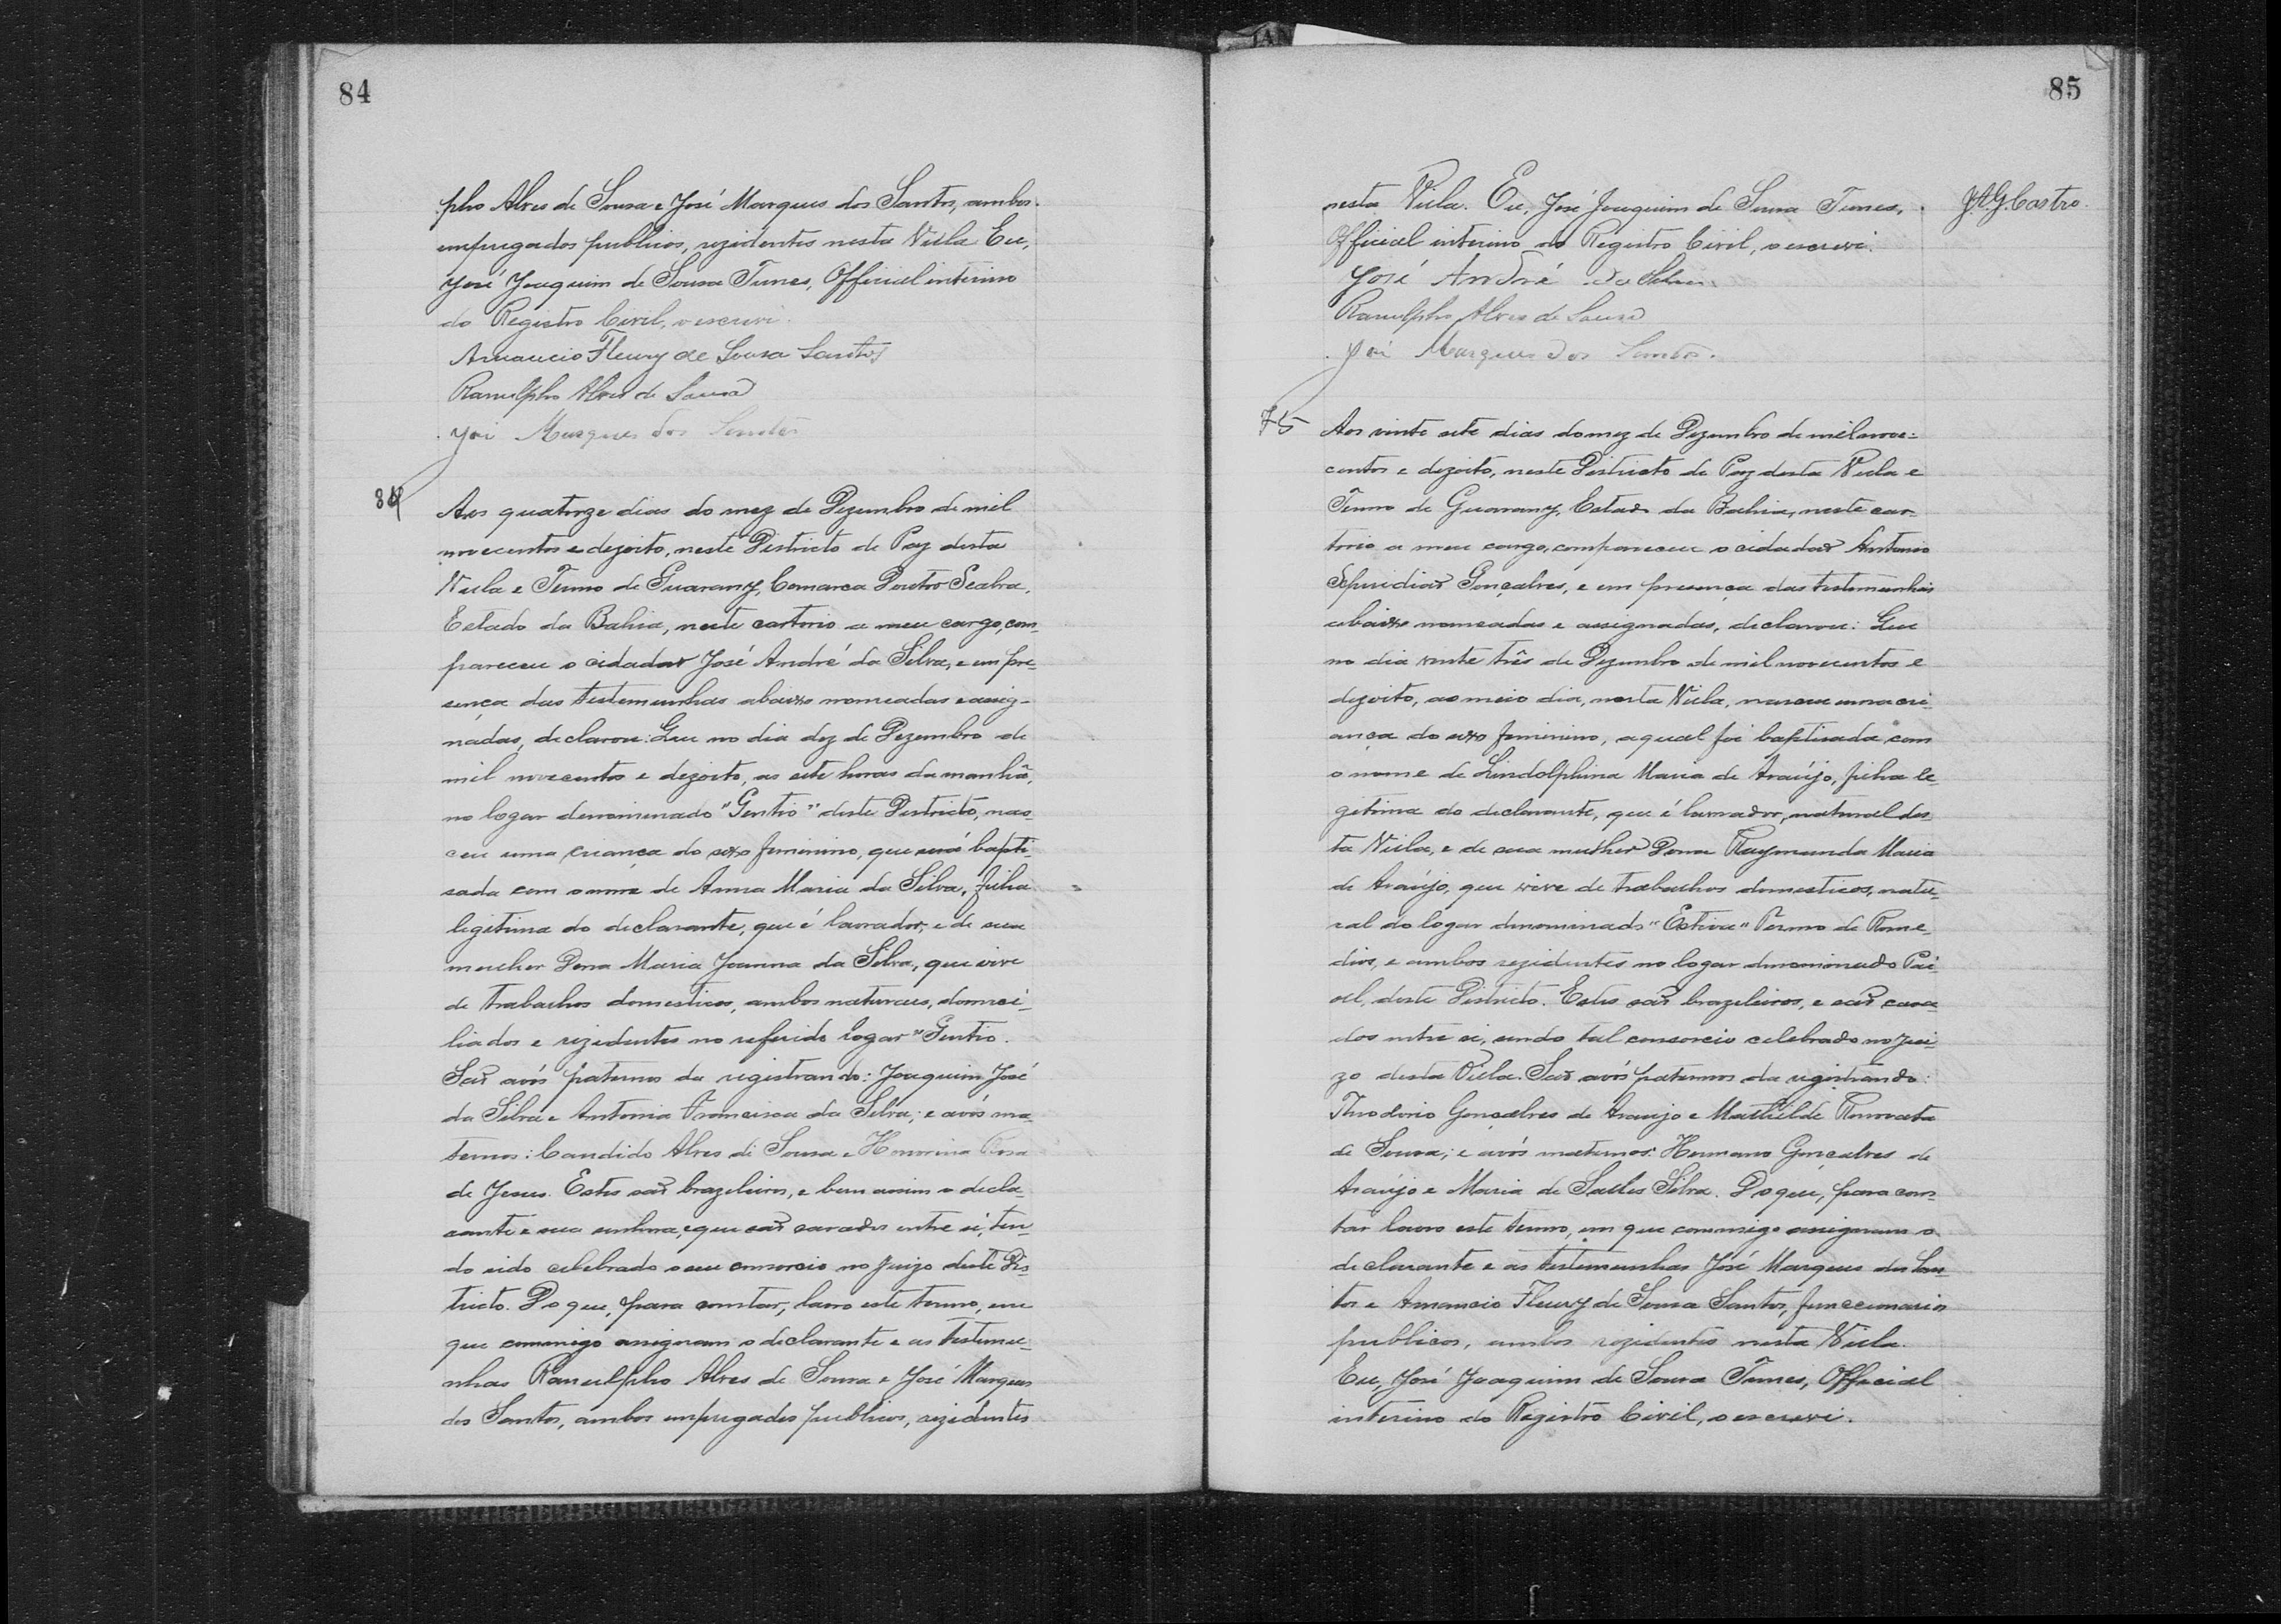 84
pho Alves de Sousa e José Marques dos Santos, ambos
empregados publicos, rezidentes nesta Villa. Eu,
José Joaquim de Sousa Tunes, Official interino
do Registro Civil, o escrevi.
Amancio Fleury de Sousa Santos
Ranulpho Alves de Sousa
José Marques dos Santos
Aos quatorze dias do mez de Dezembro de mil
novecentos e dezoito, neste Districto de Paz desta
Villa e Termo de Guarany, Comarca Doutor Seabra,
Estado da Bahia, neste cartorio a meu cargo, com-
pareceu o cidadão José André da Silva, e em pre-
sença das testemunhas abaixo nomeadas e assig-
nadas, declarou: Que no dia dez de Dezembro de
mil novecentos e dezoito, as sete horas da manhã,
no logar denominado "Gentio" deste Districto, nas-
ceu uma criança do sexo feminino, que será bapti-
sada com o nome de Anna Maria da Silva, filha
legitima do declarante, que é lavrador, e de sua
mulher Dona Maria Joanna da Silva, que vive
de trabalhos domesticos, ambos naturaes, domici-
liados e rezidentes no referido logar "Gentio.
São avós paternos da registrando: Joaquim José
da Silva e Antonia Francisca da Silva; e avós ma-
ternos: Candido Alves de Sousa e Honorina Rosa
de Jesus. Estes são brazileiros, e bem assim o decla-
rante e sua senhora, que são casados entre si, ten-
do sido celebrado o seu consorcio no Juizo deste Dis-
tricto. Do que, para constar, lavro este termo, em
que commigo assignam o declarante e as testemu-
nhas Ranulpho Alves de Sousa e José Marques
dos Santos, ambos empregados publicos, rezidentes
85
nesta Villa. Eu, José Joaquim de Sousa Tunes,
Official interino do Registro Civil, o escrevi.
José André da Silva
Ranulpho Alves de Sousa
José Marques dos Santos.
J.A.G. Castro.
75
Aos vinte sete dias do mez de Dezembro de mil nove-
centos e dezoito, neste Districto de Paz desta Villa e
Termo de Guarany, Estado da Bahia, neste car-
torio a meu cargo, compareceu o cidadão Antonio
Gonçalves, e em presença das testemunhas
abaixo nomeadas e assignadas, declarou: Que
no dia vinte três de Dezembro de mil novecentos e
dezoito, ao meio dia, nesta Villa, nasceu uma cri-
ança do sexo feminino, a qual foi baptisada com
o nome de Lindolphina Maria de Araújo, filha le-
gitima do declarante, que é lavrador, natural des-
ta Villa, e de sua mulher Dona Raymunda Maria
de Araújo, que vive de trabalhos domesticos, natu-
ral do logar denominado "Estiva" Termo de Reme-
dios, e ambos rezidentes no logar denominado
deste Districto. Estes são brazileiros, e são casa-
dos entre si, sendo tal consorcio celebrado no Jui-
zo desta Villa. São avós paternos da registrando:
Theodorio Gonçalves de Araujo e Mathilde Renovata
de Sousa; e avós maternos: Hermano Gonçalves de
Araújo e Maria de Salles Silva. Do que, para cons-
tar lavro este termo, em que commigo assignam o
declarante e as testemunhas José Marques dos San-
tos e Amancio Fleury de Sousa Santos, funccionarios
publicos, ambos rezidentes nesta Villa.
Eu, José Joaquim de Sousa Tunes, Official
interino do Registro Civil, o escrevi.